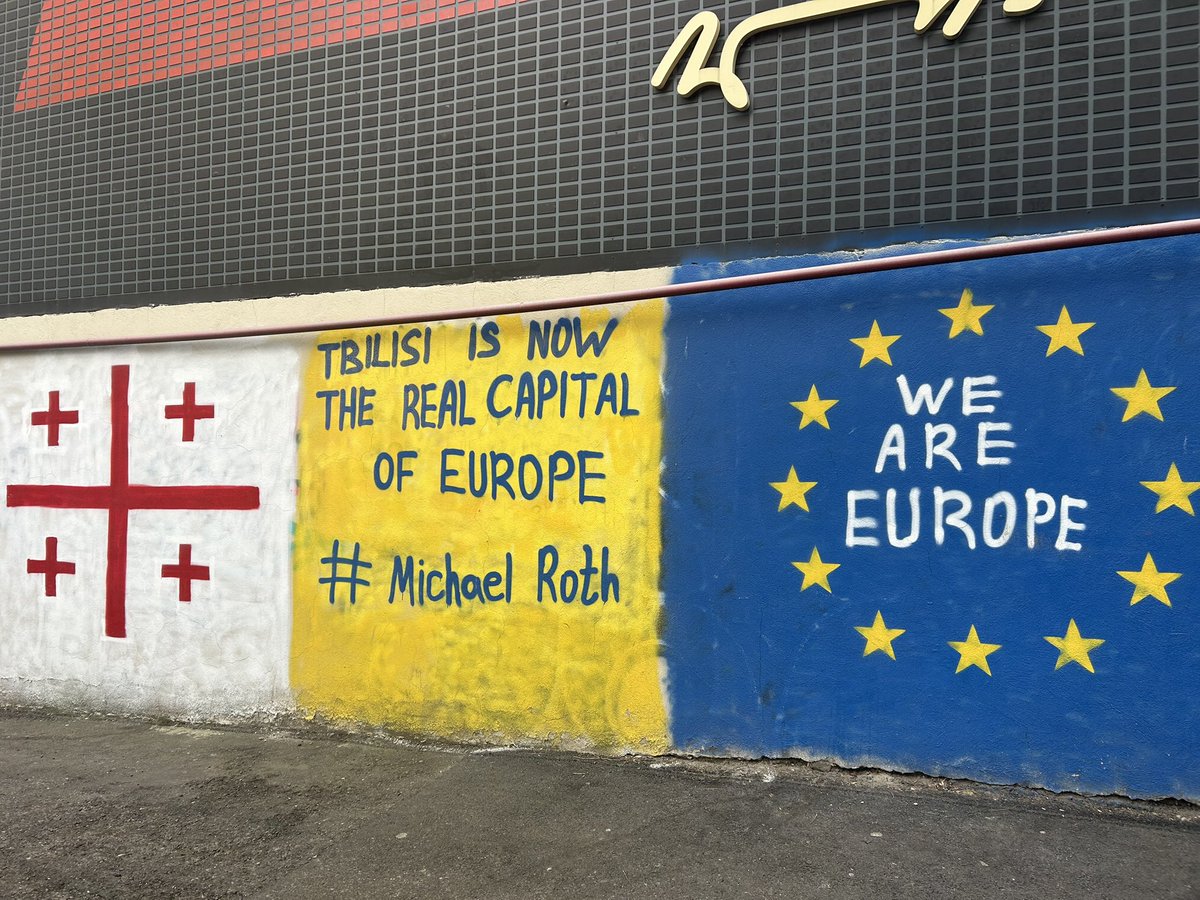 TBILISI IS NOW
THE REAL CAPITAL
OF EUROPE
# Michael Roth
WE
ARE
EUROPE